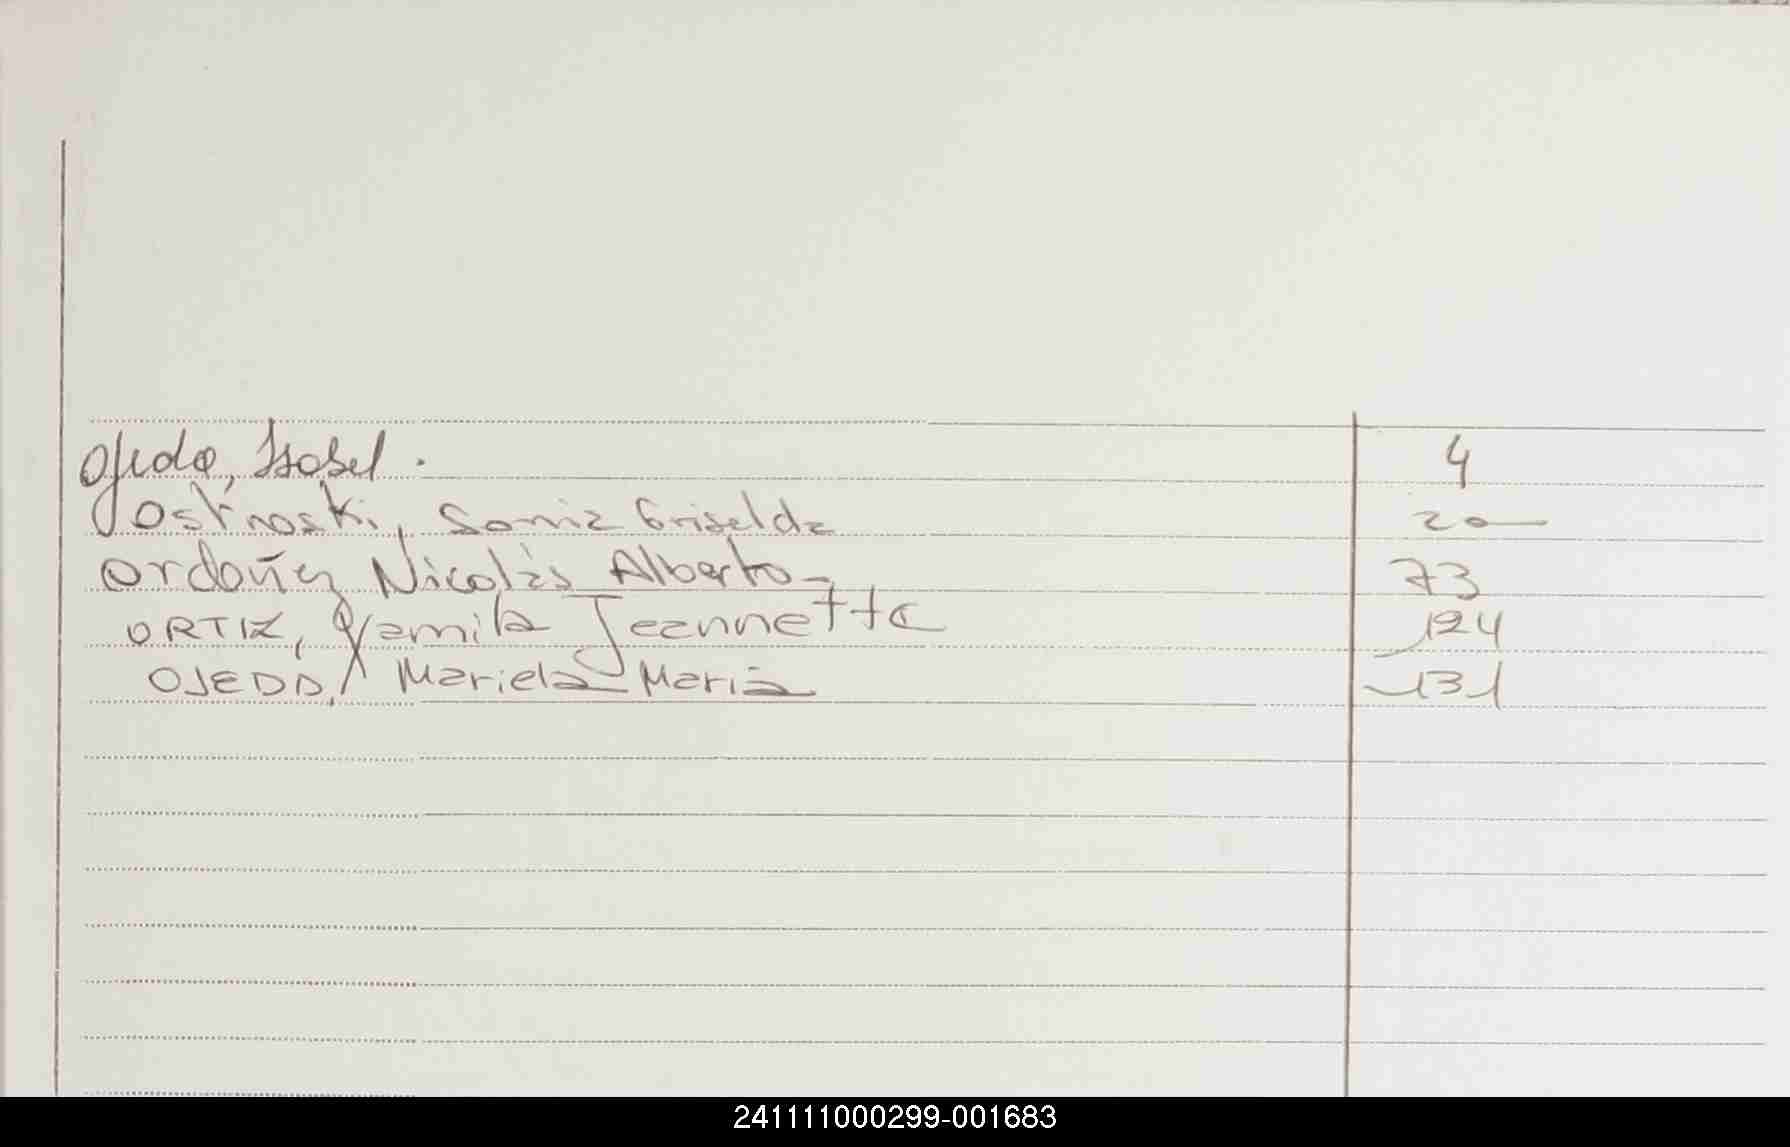 Ojeda, Isabel. 4
Ostroski, Sonia Griselda 20
Ordoñez Nicolás Alberto 73
ORTIZ, Yamila Jeannette 124
OJEDA, Mariela Maria 131
241111000299-001683